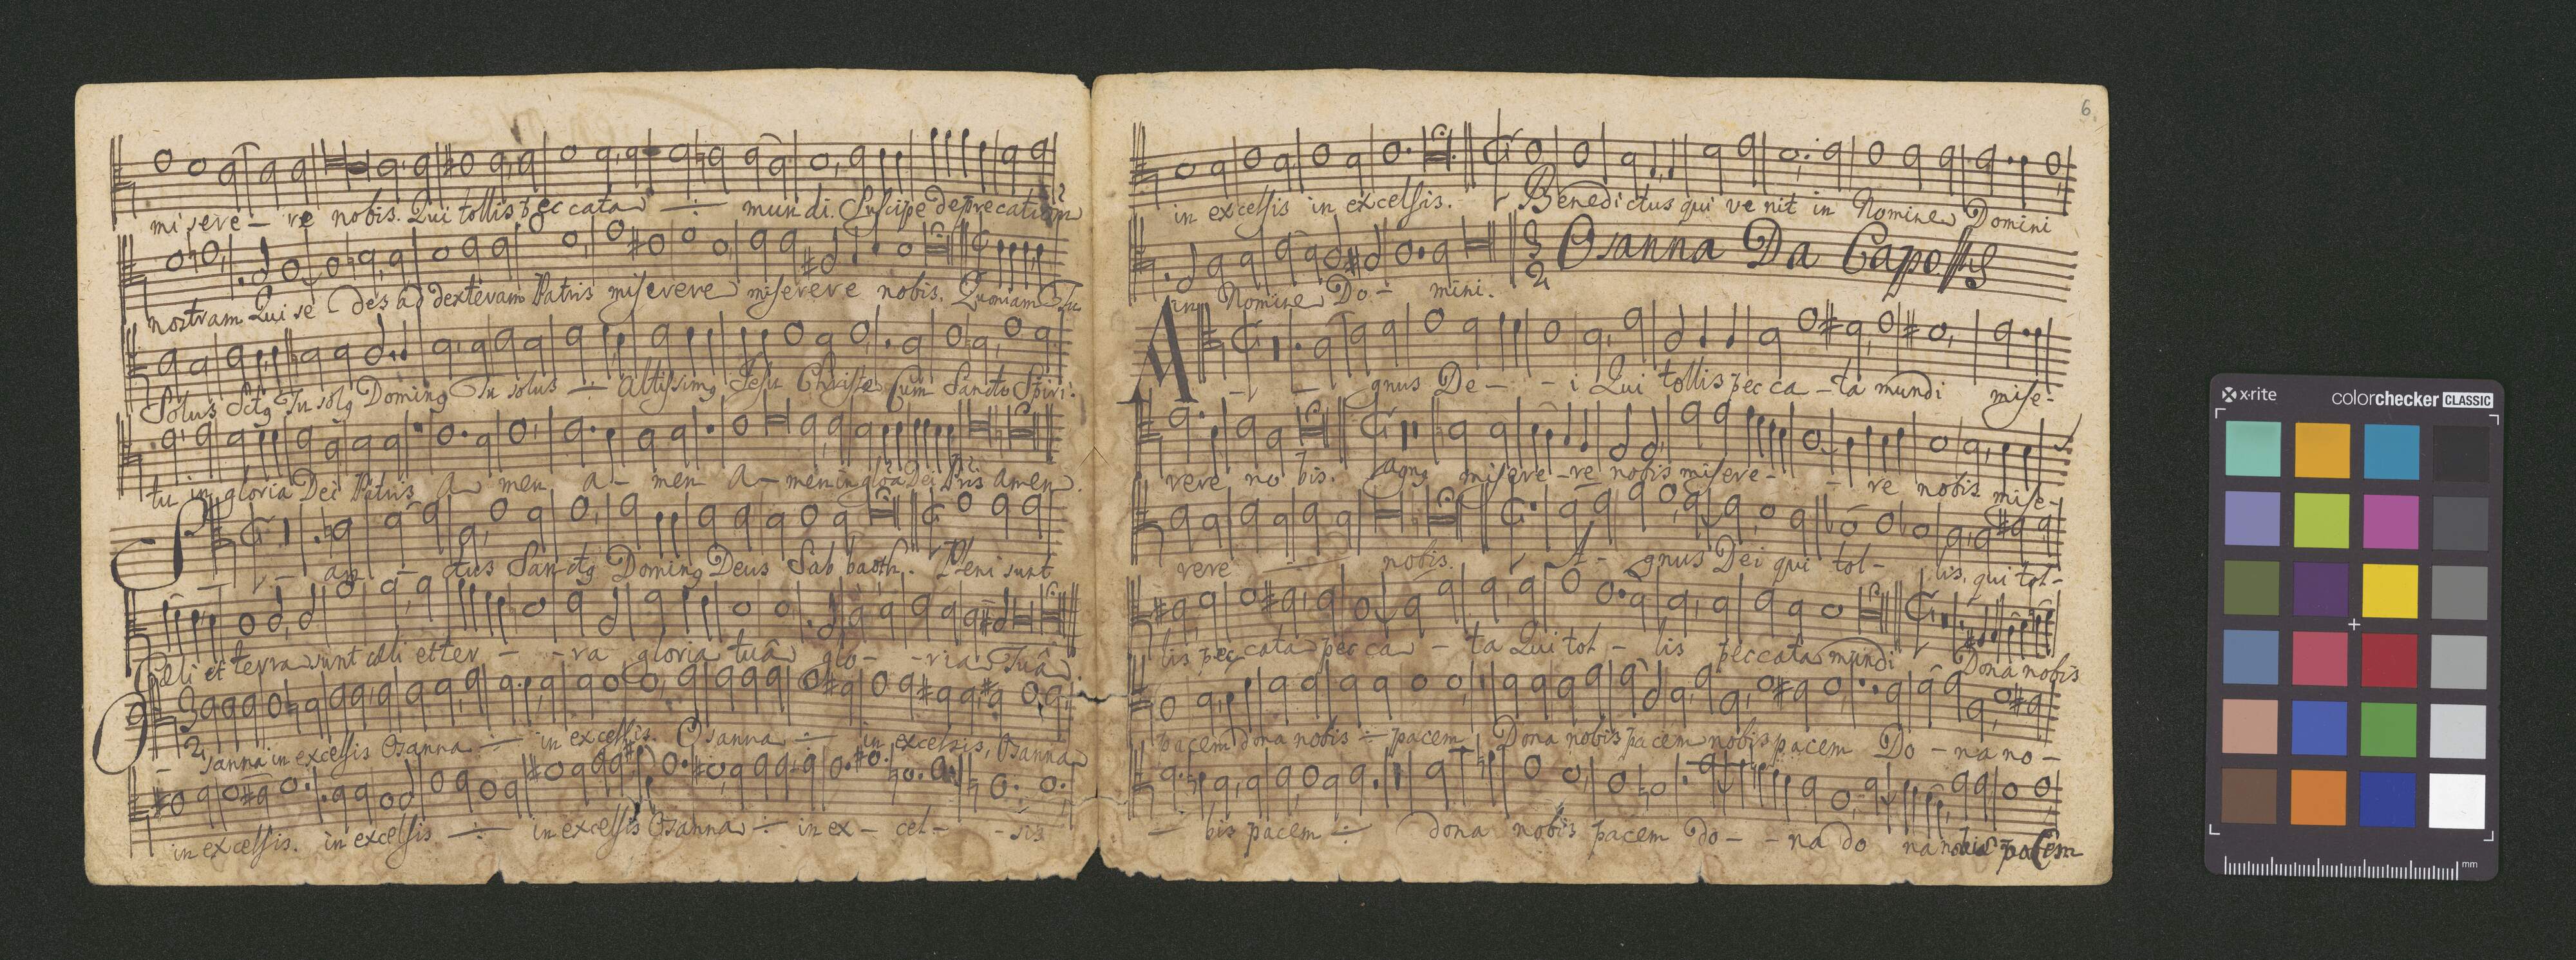 mi sere - re nobis. Qui tollis pec cata ÷ mundi. Suscipe deprecationem
nostram Qui se - des ad dexteram Patris miserere miserere nobis. Quoniam Tu
Solus Sctq Tu solq Dominq Tu solus ÷ Altissimq Jesu Christe Cum Sancto Spiri-
tu in gloria Dei Patris A men a - men A - men in glõa Dei Pris amen.
S - an - ctus San-ctq Dominq Deus Sab baoth. Pleni sunt
Cæli et terra sunt cæli et ter - - ra gloria tuâ glo - - ria Tuâ.
O sanna in excelsis Osanna ÷ in excelsis. Osanna ÷ in excelsis, Osanna
in excelsis. in excelsis ÷ in excelsis Osanna ÷ in ex - cel - - sis
6.
in excelsis in excelsis. Benedictus qui ve nit in Nomine Domini
in Nomine Do - mini. 3 2 Osanna Da Capo
A - - gnus De - - i Qui tollis pec ca - ta mundi mise-
rere no bis. Agnq misere - re nobis misere - - re nobis mise-
rere nobis. A - gnus Dei qui tol - lis, qui tol-
lis pec cata pec ca - ta Qui tol - lis peccata mundi Dona nobis
pacem dona nobis ÷ pacem Dona nobis pacem nobis pacem Do - na no -
- bis pacem ÷ dona nobis pacem do - - na do na nobis pacem
x·rite colorchecker CLASSIC
mm